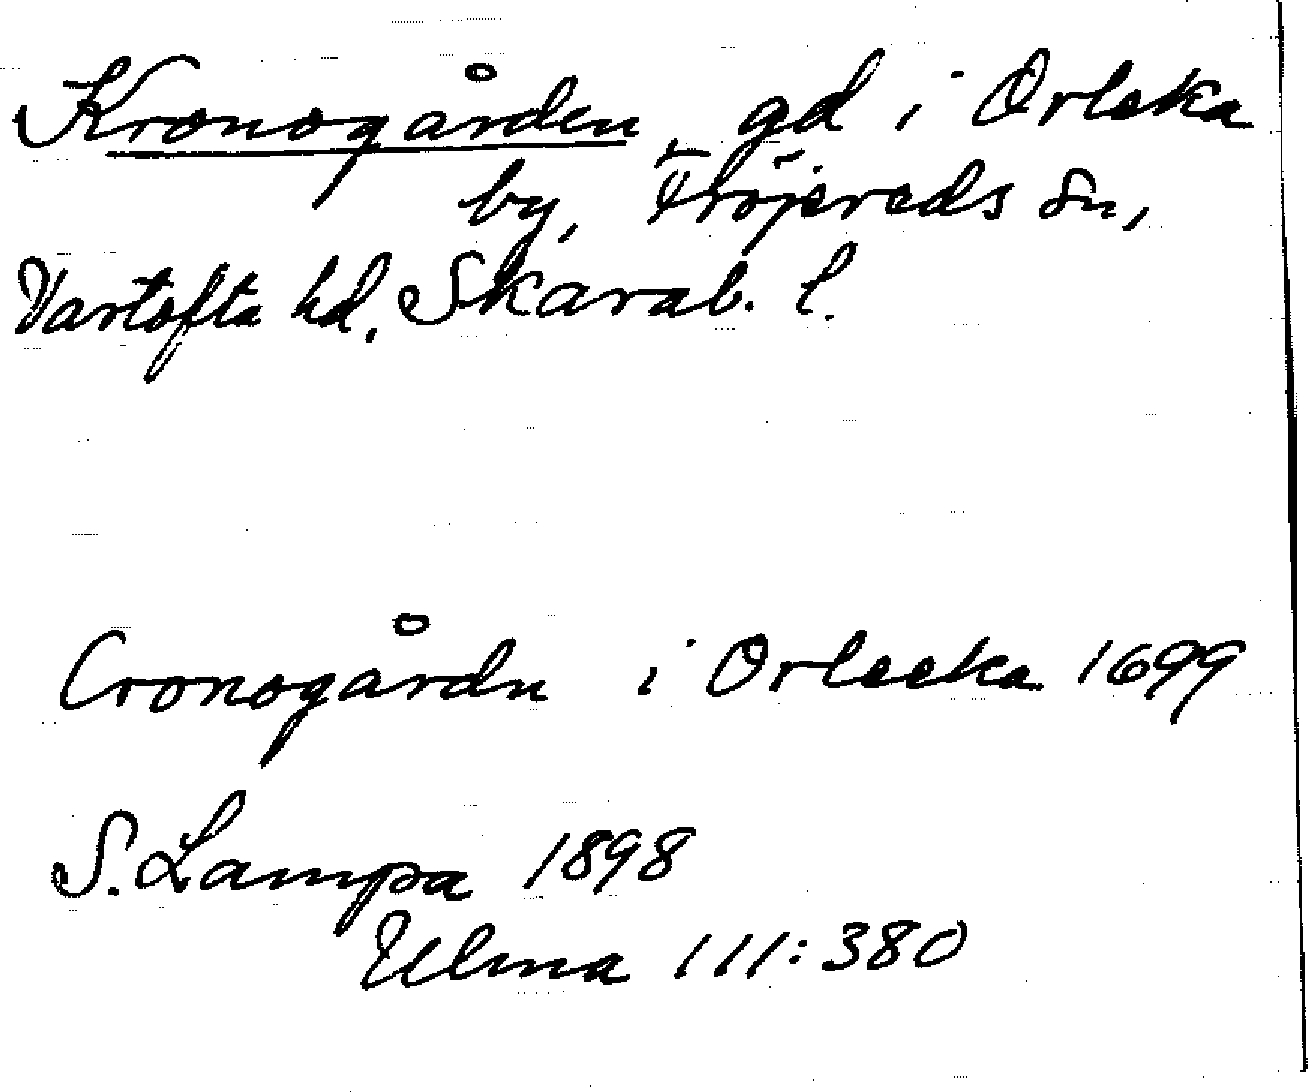 Kronogården, gd i Orleka
by, Fröjereds sn,
Vartofta hd, Skarab. l.
Cronogårdn i Orleeka 1699
S. Lampa 1898
Ulma 111:380